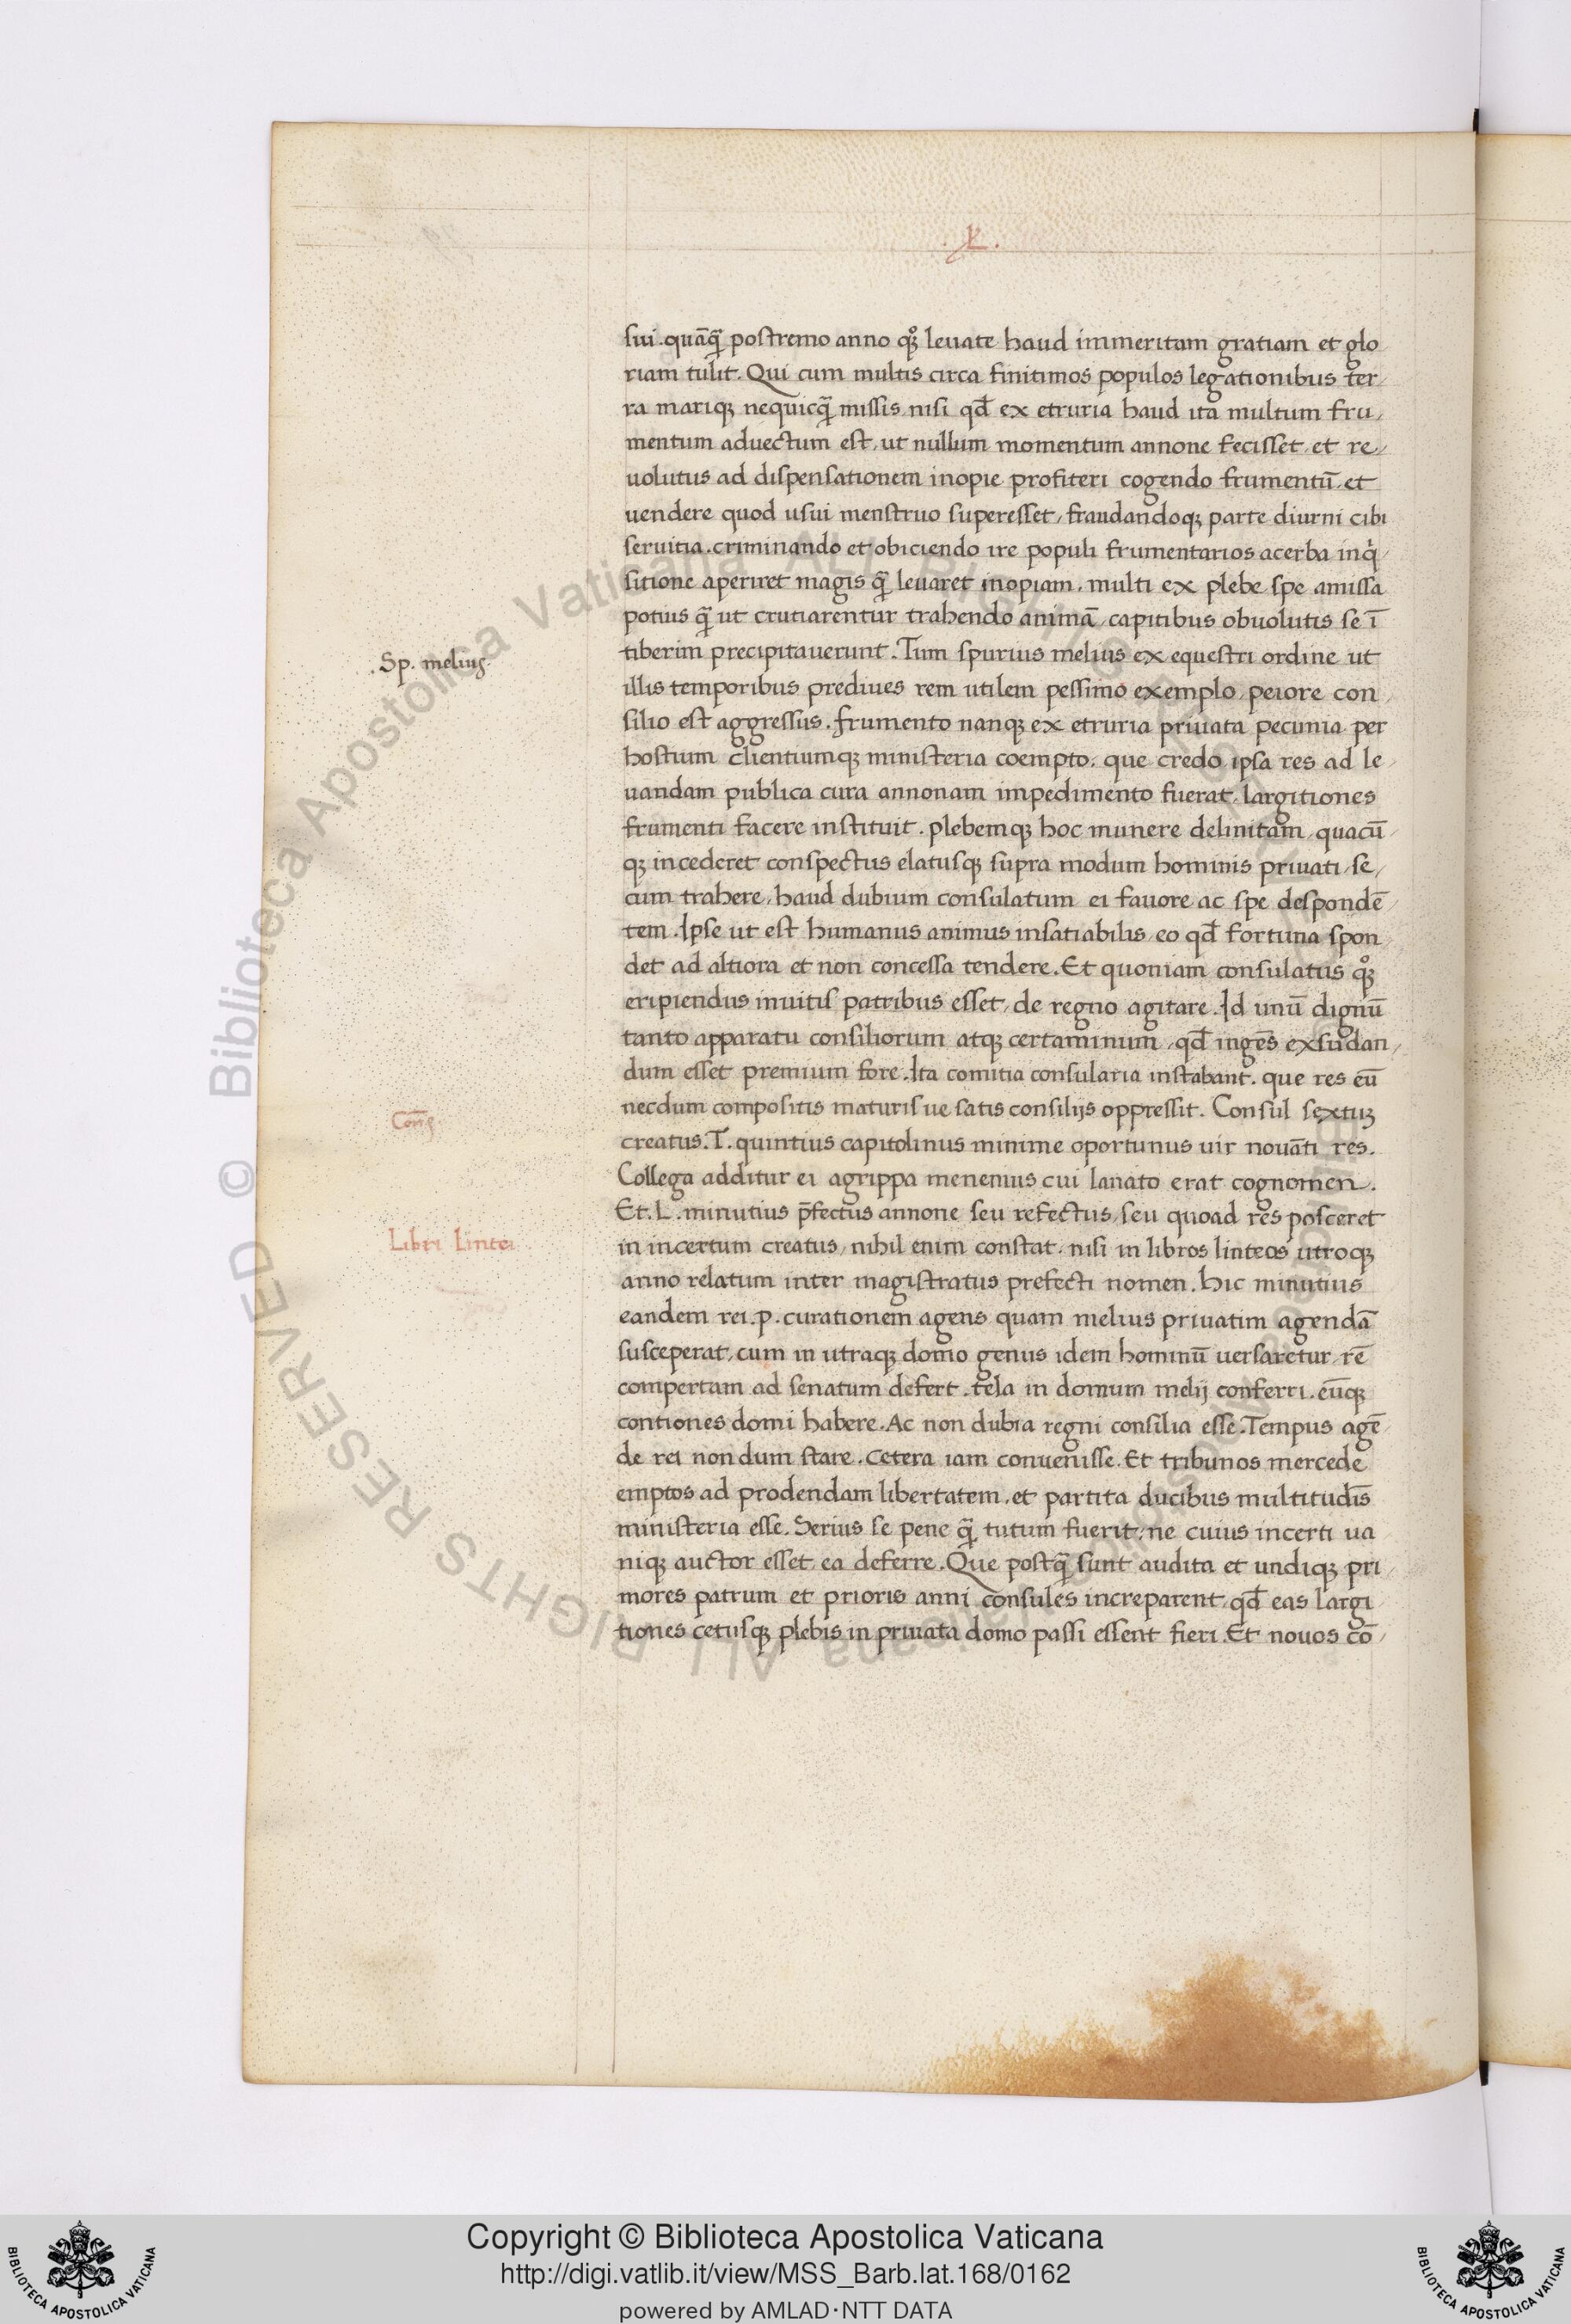 .L.
sui. quāq̄ postremo anno qꝫ leuate haud immeritam gratiam et glo
riam tulit. Qui cum multis circa finitimos populos legationibus ter
ra mariqꝫ nequicq̄ missis nisi qd̄ ex etruria haud ita multum fru
mentum aduectum est, ut nullum momentum annone fecisset, et re
uolutus ad dispensationem inopie profiteri cogendo frumentū, et
uendere quod usui menstruo superesset, fraudandoqꝫ parte diurni cibi
seruitia. criminando et obiciendo ire populi frumentarios acerba inqͥ
sitione aperiret magis q̄ leuaret inopiam. multi ex plebe spe amissa
potius q̄ ut crutiarentur trahendo animā, capitibus obuolutis se ī
.Sp. melius.
tiberim precipitauerunt. Tum spurius melius ex equestri ordine ut
illis temporibus prediues rem utilem pessimo exemplo, peiore con
silio est aggressus. frumento nanqꝫ ex etruria priuata pecunia per
hostium clientiumqꝫ ministeria coempto. que credo ipsa res ad le
uandam publica cura annonam impedimento fuerat, largitiones
frumenti facere instituit. plebemqꝫ hoc munere delinitam, quacū
qꝫ incederet conspectus elatusqꝫ supra modum hominis priuati, se
cum trahere, haud dubium consulatum ei fauore ac spe despondē
tem. Ipse ut est humanus animus insatiabilis eo qd̄ fortuna spon
det ad altiora et non concessa tendere. Et quoniam consulatus qꝫ
eripiendus inuitis patribus esset, de regno agitare. Id unū dignū
tanto apparatu consiliorum atqꝫ certaminum, qd̄ ingēs exsudan
dum esset premium fore. Ita comitia consularia instabant. que res eū
Coñs.
necdum compositis maturis ue satis consilijs oppressit. Consul sextuꝫ
creatus. T. quintius capitolinus minime oportunus uir nouāti res.
Collega additur ei agrippa menenius cui lanato erat cognomen.
Et. L. minutius p̄fectus annone seu refectus, seu quoad res posceret
Libri lintei
in incertum creatus, nihil enim constat. nisi in libros linteos utroqꝫ
anno relatum inter magistratus prefecti nomen. hic minutius
eandem rei. p. curationem agens quam melius priuatim agendā
susceperat, cum in utraqꝫ domo genus idem hominū uersaretur, rē
compertam ad senatum defert. tela in domum melij conferri. eūqꝫ
contiones domi habere. Ac non dubia regni consilia esse. Tempus agē
de rei nondum stare. cetera iam conuenisse. Et tribunos mercede
emptos ad prodendam libertatem, et partita ducibus multitudīs
ministeria esse. Serius se pene q̄ tutum fuerit, ne cuius incerti ua
niqꝫ auctor esset, ea deferre. Que postq̄ sunt audita et undiqꝫ pri
mores patrum et prioris anni consules increparent, qd̄ eas largi
tiones cetusqꝫ plebis in priuata domo passi essent fieri. Et nouos cō
© Biblioteca Apostolica Vaticana ALL RIGHTS RESERVED
BIBLIOTECA APOSTOLICA VATICANA
Copyright © Biblioteca Apostolica Vaticana
http://digi.vatlib.it/view/MSS_Barb.lat.168/0162
powered by AMLAD·NTT DATA
BIBLIOTECA APOSTOLICA VATICANA